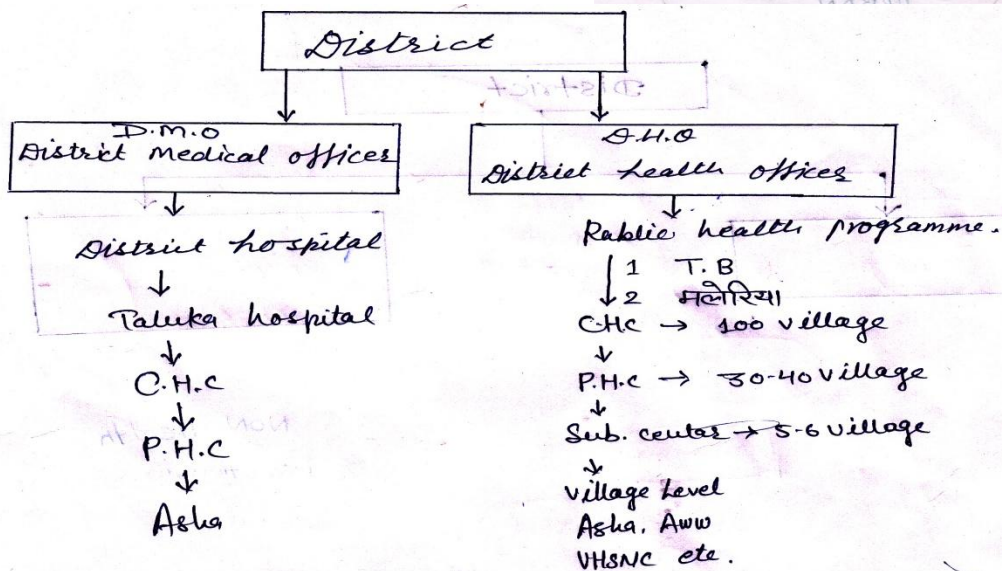 District
D.M.O
District Medical offices
District hospital
Taluka hospital
C.H.C
P.H.C
Asha
D.H.O
District health offices
Rablic health programme.
1 T.B
2 मलेरिया
CHC → 100 village
P.H.C → 30-40 village
Sub. center → 5-6 village
Village Level
Asha, Aww
VHSNC etc.